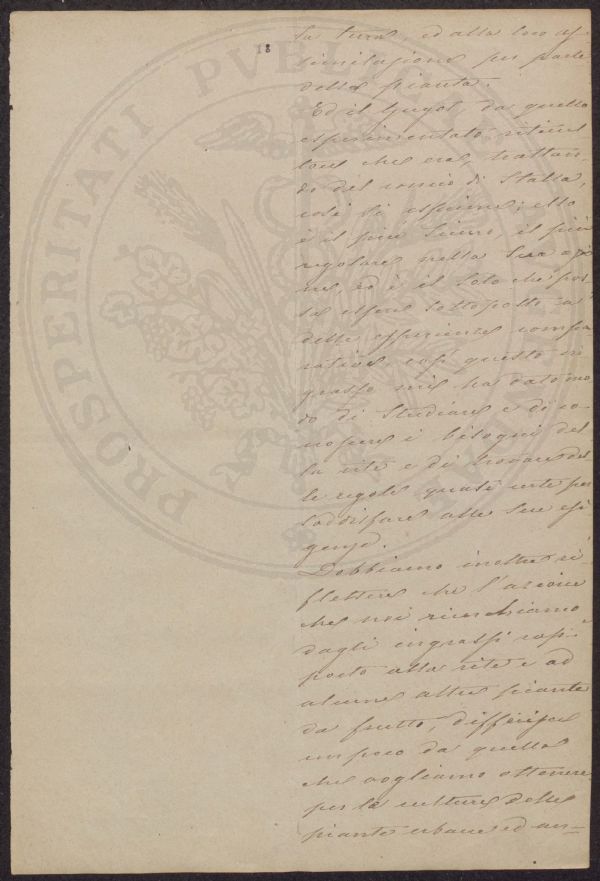 18
la terra, ed alla loro as-
similazione per parte
della pianta.
Ed il Guyot, da quello
esperimentato, ritiene
che trattan-
do del concio di stalla,
così si esprime; esso
è il più sicuro, il più
regolare nella sua azio
ne, ed è il solo che pos-
sa essere sottoposto a
delle esperienze compa
rative, così questo in
grasso mi ha dato mo
do di studiare e di co-
noscere i bisogni del-
la vite e di trovare del
le regole quasi certe per
soddisfare alle sue esi
genze.
Dobbiamo inoltre ri-
flettere che l'azione
che noi ricerchiamo
dagli ingrassi rap-
porto alla vite e ad
alcune altre piante
da frutto, differisce
un poco da quella
che vogliamo ottenere
per la cultura delle
piante erbacee ed an-
PROSPERITATI PVBLICAE